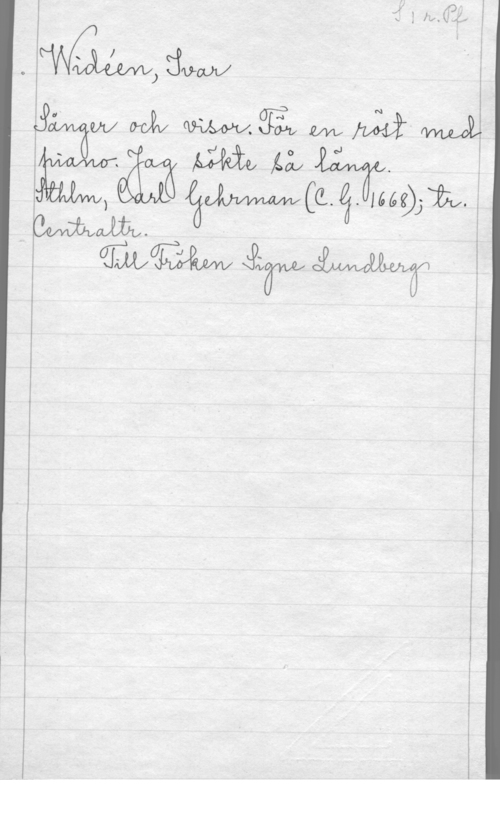 S 1 r. Pf
Widéen, Ivar
Sånger och visor. För en röst med
piano. Jag sökte så länge.
Sthlm, Carl Gehrman (C. G. 1668); tr.
Centraltr.
Till Fröken Signe Lundberg